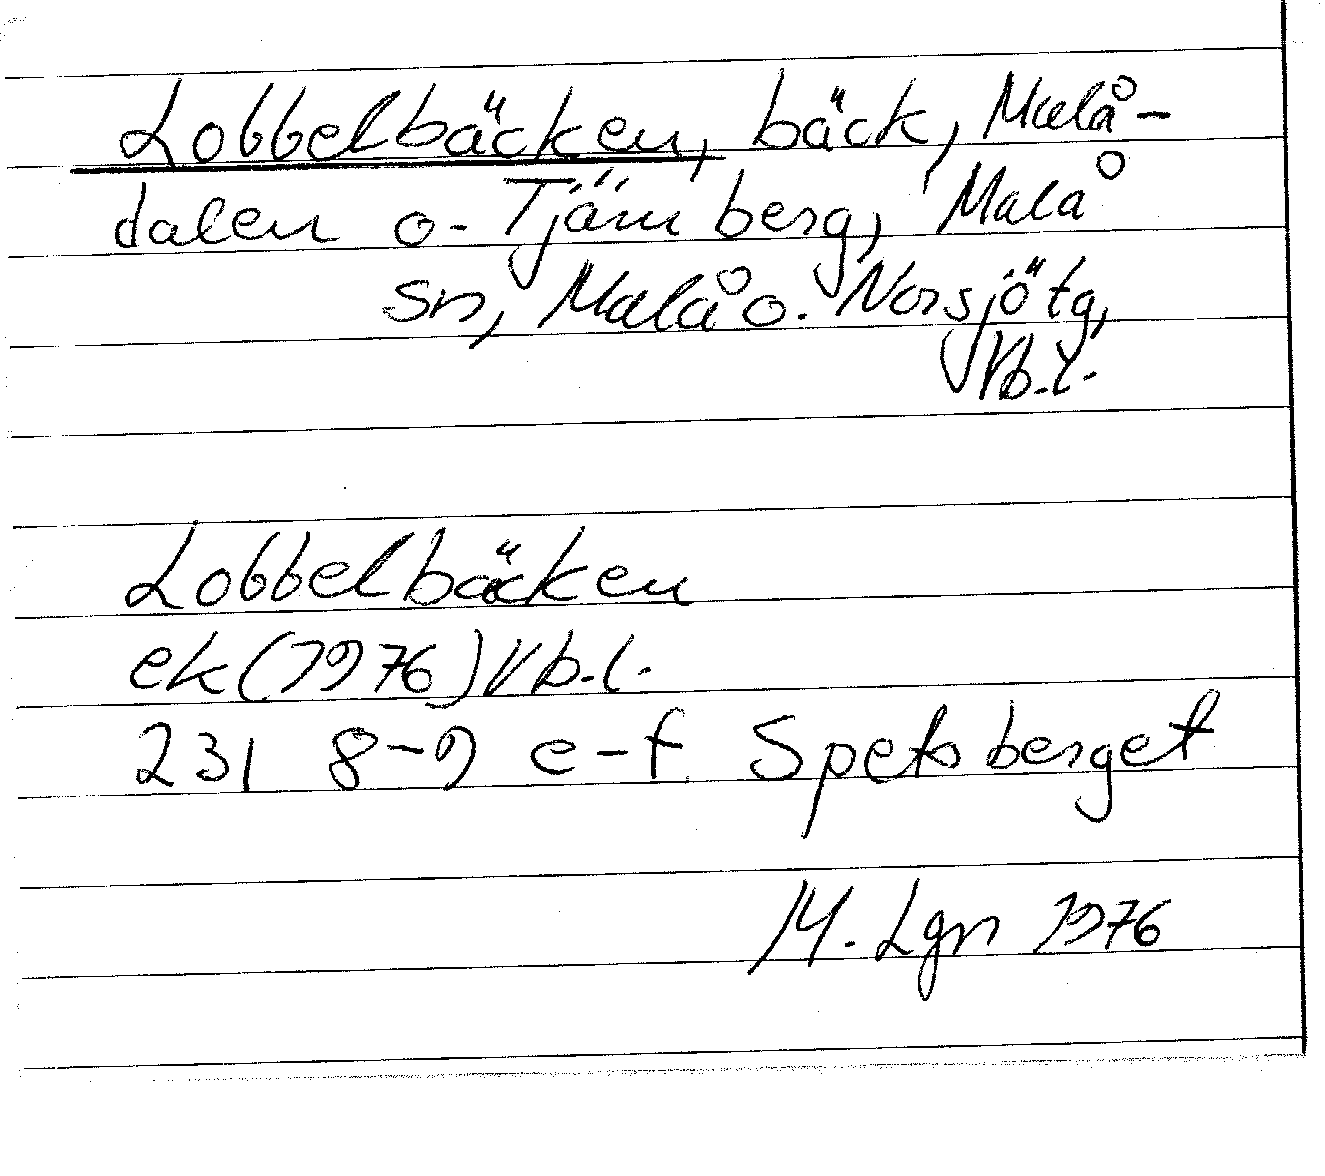 Lobbelbäcken, bäck, Malå-
dalen o. Tjärnberg, Malå
sn, Malå o. Norsjö tg,
Vb.l.
Lobbelbäcken
ek (1976) Vb.l.
231 8-9 e-f Spetsberget
M. Lgn 1976